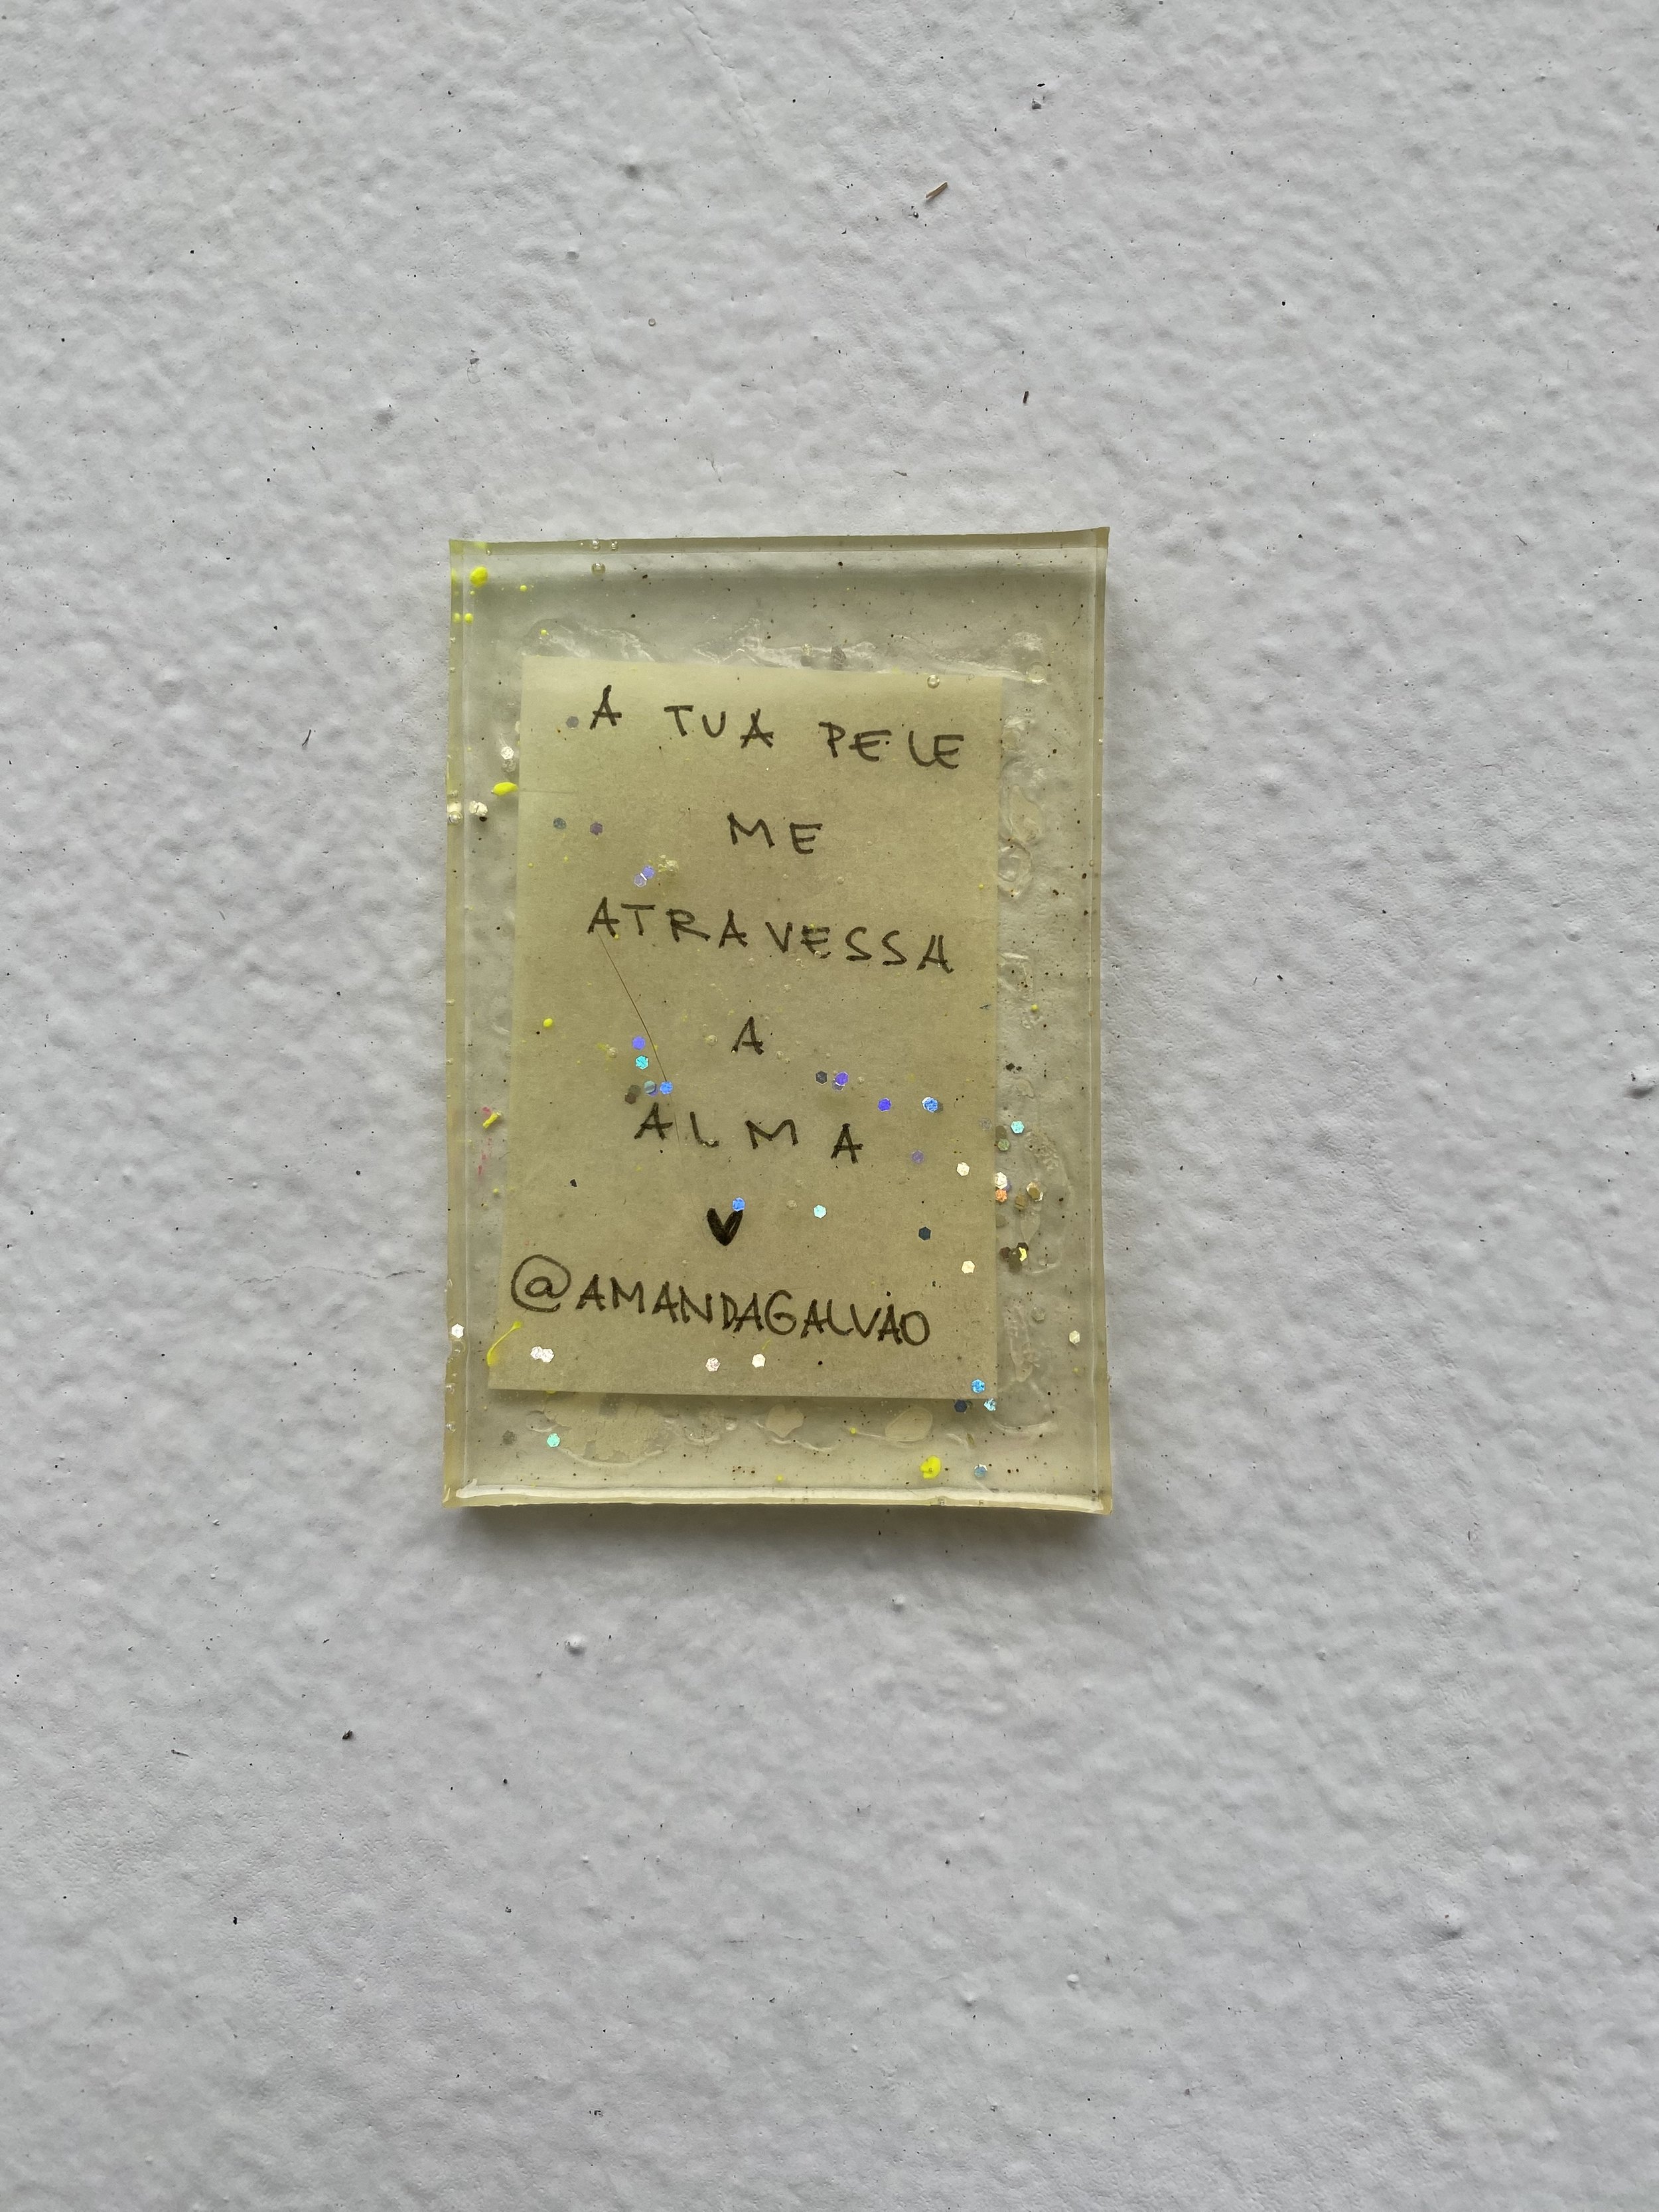 A TUA PELE
ME
ATRAVESSA
A
ALMA
♥
@AMANDAGALVAO